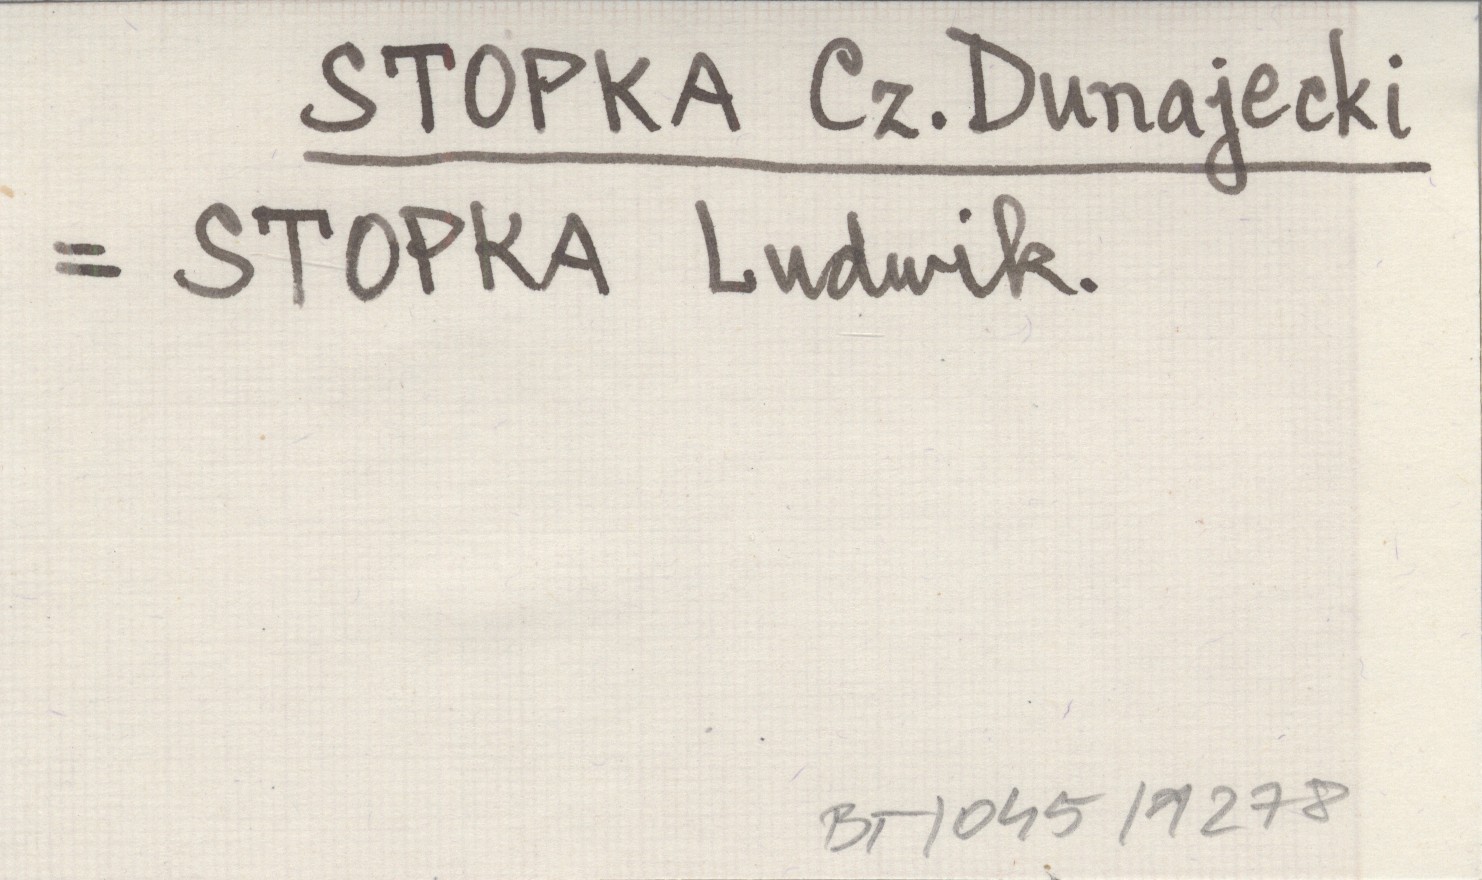 STOPKA Cz. Dunajecki
= STOPKA Ludwik.
BT/045/9278